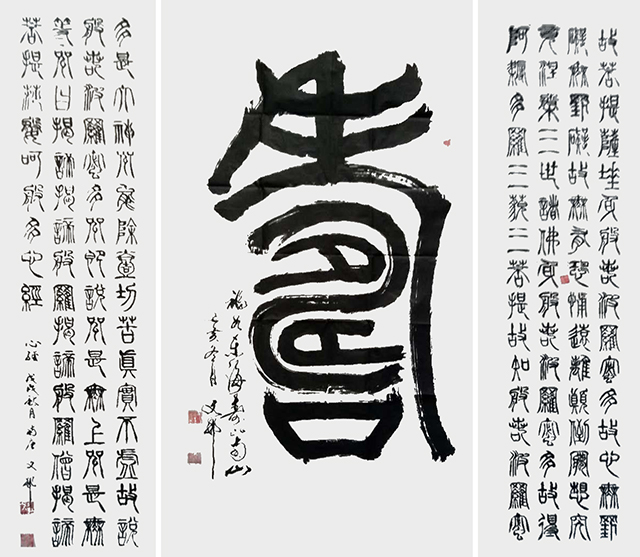 故菩提薩埵依般若波羅蜜多故心無罣
礙無罣礙故無有恐怖遠離顛倒夢想究
竟涅槃三世諸佛依般若波羅蜜多故得
阿耨多羅三藐三菩提故知般若波羅蜜
壽
福如東海壽比南山
己亥冬月 文彬
多是大神咒能除一切苦真實不虛故說
般若波羅蜜多咒即說咒是無上咒是無
等咒曰揭諦揭諦般羅揭諦般羅僧揭諦
菩提莎婆呵般多心經
心經 戊戌秋月 文彬